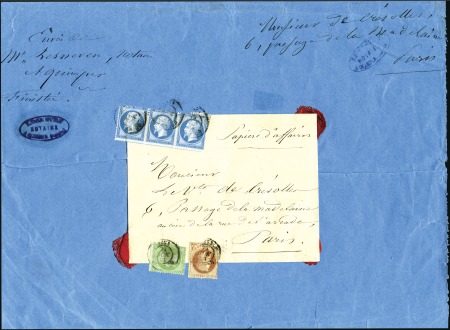 Monsieur de Crésolles
6, passage de la Madelaine
Paris
Envoi de
Me Lesneven, Notaire
à Quimper
Finistère
NOTAIRE
Papiers d'affaires
Monsieur
Le Vte de Crésolles
6, Passage de la Madelaine
au coin de la rue de l'arcade,
Paris